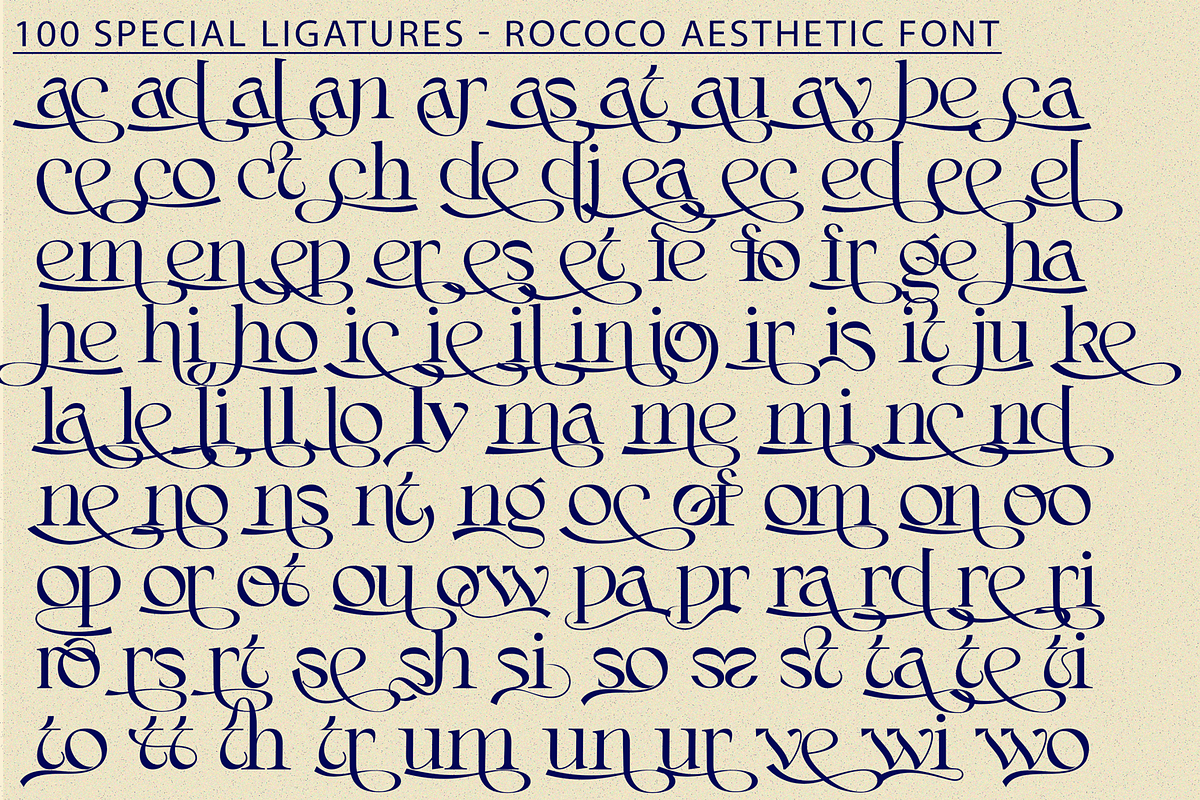 100 SPECIAL LIGATURES - ROCOCO AESTHETIC FONT
ac ad al an ar as at au av be ca
ce co ct ch de di ea ec ed ee el
em en ep er es et fe fo fr ge ha
he hi ho ic ie il in io ir is it ju ke
la le li ll lo ly ma me mi nc nd
ne no ns nt ng oc of om on oo
op or ot ou ow pa pr ra rd re ri
ro rs rt se sh si so ss st ta te ti
to tt th tr um un ur ve wi wo